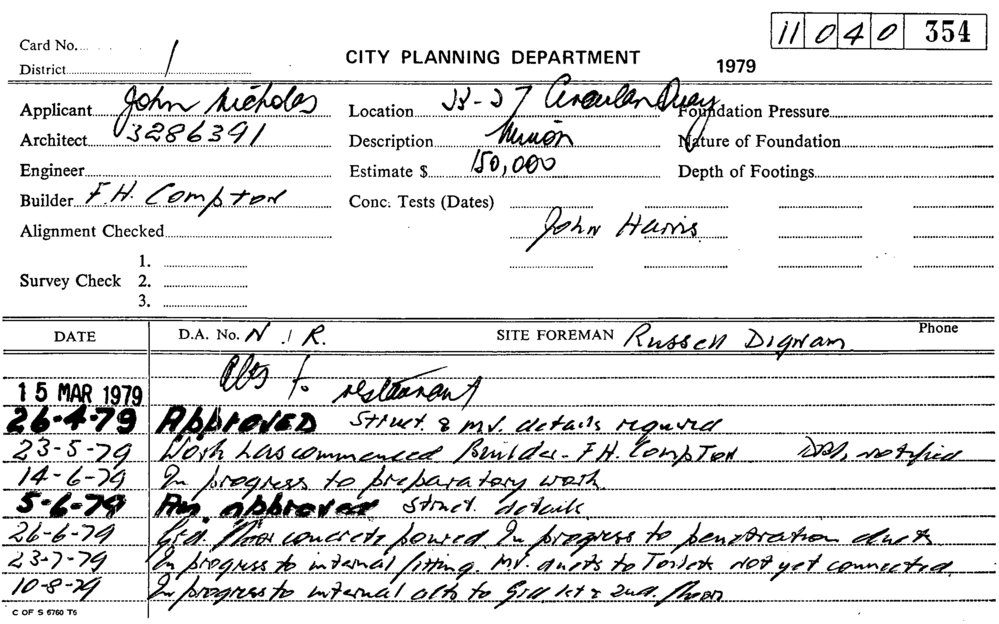 11 0 4 0 354
Card No.
CITY PLANNING DEPARTMENT 1979
District 1
Applicant John Nicholas Location 23-27 Circular Quay Foundation Pressure
Architect 3286391 Description Minor Nature of Foundation
Engineer Estimate $ 150,000 Depth of Footings
Builder F.H. Compton Conc. Tests (Dates)
Alignment Checked John Harris
1.
Survey Check 2.
3.
DATE D.A. No. N / R. SITE FOREMAN Russell Dignam Phone
Alts to restaurant
15 MAR 1979
26-4-79 APPROVED Struct. & M.V. details required
23-5-79 Work has commenced Builder - F.H. Compton notified
14-6-79 In progress to preparatory work.
5-6-79 Am. approved Struct. details
26-6-79 Grd. floor concrete poured. In progress to penetration ducts
23-7-79 In progress to internal fitting. M.V. ducts to Toilets not yet connected.
10-8-79 In progress to internal alts to Grd. 1st & 2nd. floors
C OF S 6760 T5